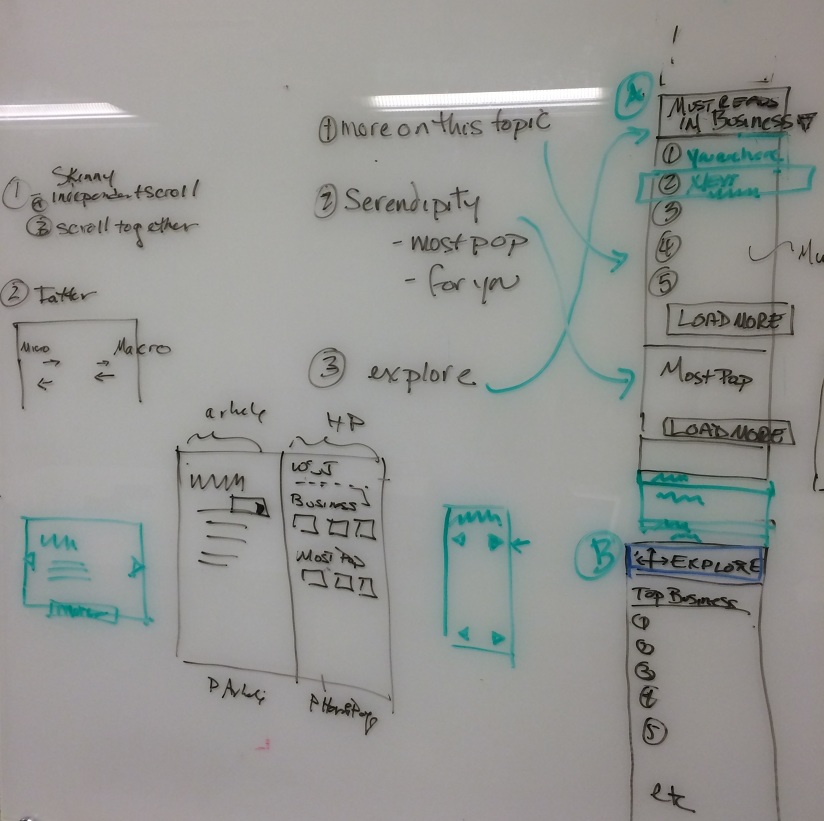 ① Skinny
ⓐ independent scroll
② scroll together
② Fatter
Micro
Macro
① more on this topic
② Serendipity
- most pop
- for you
③ explore
article
HP
WSJ
Business
Most Pop
P Article
P HomePage
A
MUST READS
IN BUSINESS
① You are here
② NEXT
③
④
⑤
Mu
LOAD MORE
Most Pop
LOAD MORE
B
EXPLORE
Top Business
①
②
③
④
⑤
etc